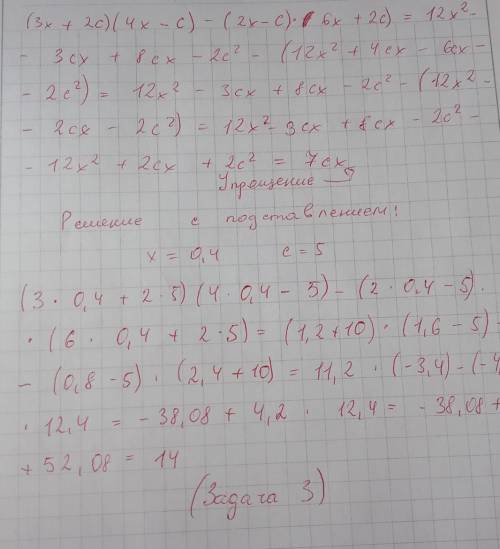 (3x + 2c)(4x - c) - (2x - c) · (6x + 2c) = 12x² -
- 3cx + 8cx - 2c² - (12x² + 4cx - 6cx -
- 2c²) = 12x² - 3cx + 8cx - 2c² - (12x² -
- 2cx - 2c²) = 12x² - 3cx + 8cx - 2c² -
- 12x² + 2cx + 2c² = 7cx
Упрощение
Решение с подставлением!
x = 0,4 c = 5
(3 · 0,4 + 2 · 5)(4 · 0,4 - 5) - (2 · 0,4 - 5) ·
· (6 · 0,4 + 2 · 5) = (1,2 + 10) · (1,6 - 5) -
- (0,8 - 5) · (2,4 + 10) = 11,2 · (-3,4) - (-4
· 12,4 = - 38,08 + 4,2 · 12,4 = - 38,08 +
+ 52,08 = 14
(Задача 3)